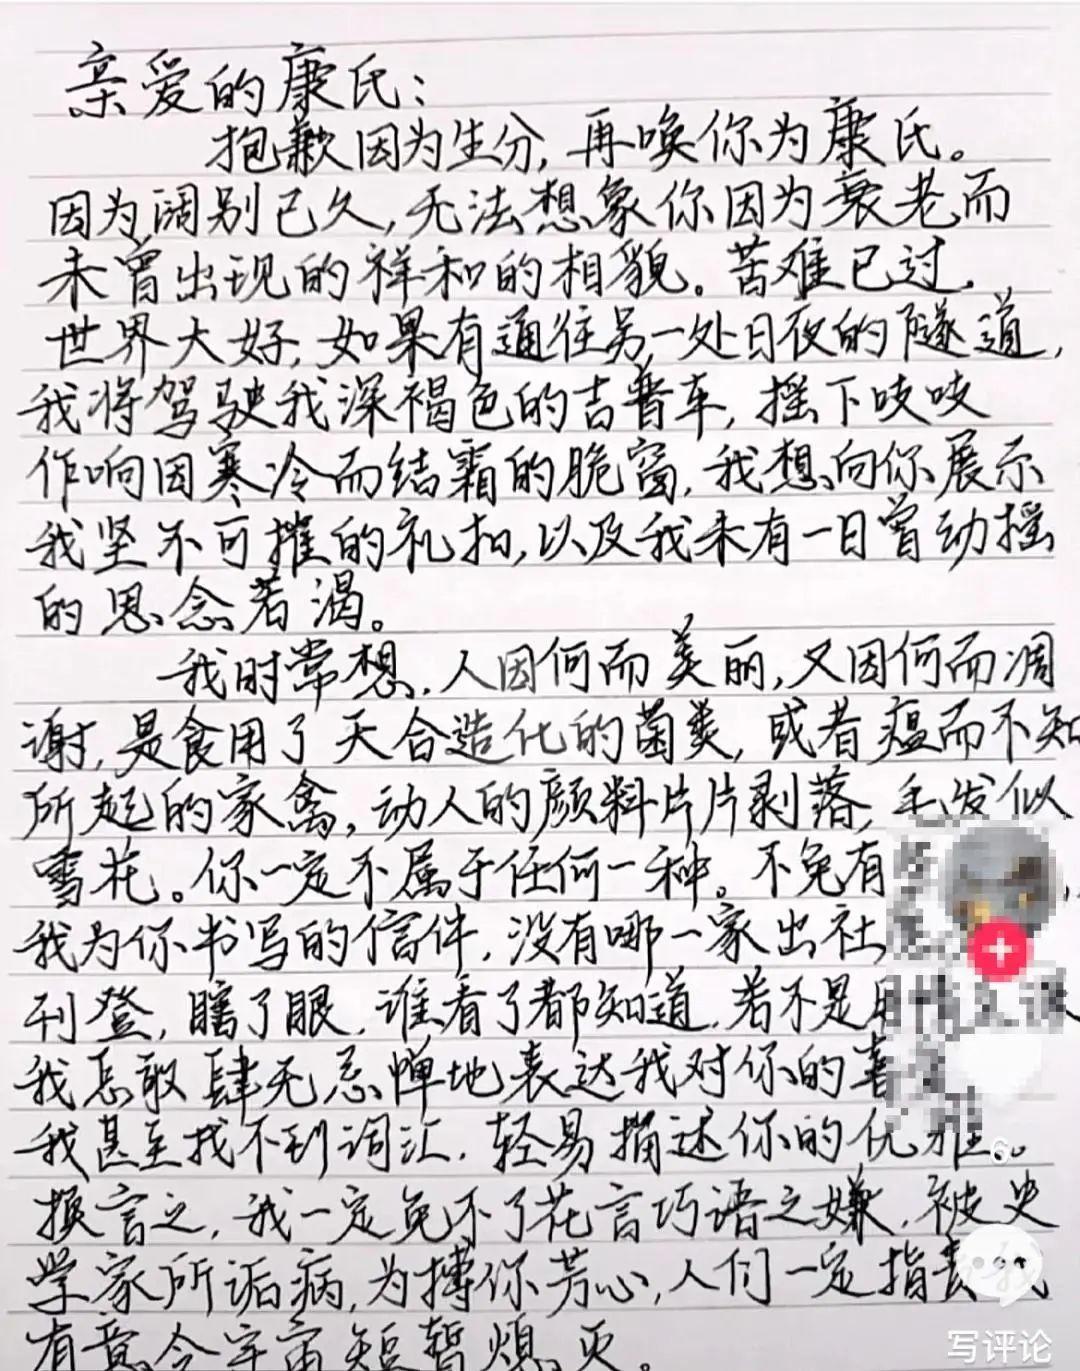 亲爱的康氏：
抱歉因为生分，再唤你为康氏。
因为阔别已久，无法想象你因为衰老而
未曾出现的祥和的相貌。苦难已过，
世界大好，如果有通往另一处日夜的隧道，
我将驾驶我深褐色的吉普车，摇下吱吱
作响因寒冷而结霜的脆窗，我想向你展示
我坚不可摧的礼扣，以及我未有一日曾动摇
的思念若渴。
我时常想，人因何而美丽，又因何而凋
谢，是食用了天合造化的菌类，或者瘟而不知
所起的家禽，动人的颜料片片剥落，毛发似
雪花。你一定不属于任何一种。不免有
我为你书写的信件，没有哪一家出社
刊登，瞎了眼，谁看了都知道，若不是用情
我怎敢肆无忌惮地表达我对你的喜
我甚至找不到词汇，轻易描述你的优雅。
换言之，我一定免不了花言巧语之嫌，被史
学家所诟病，为搏你芳心，人们一定指责我
有意令宇宙短暂熄灭。
6
写评论